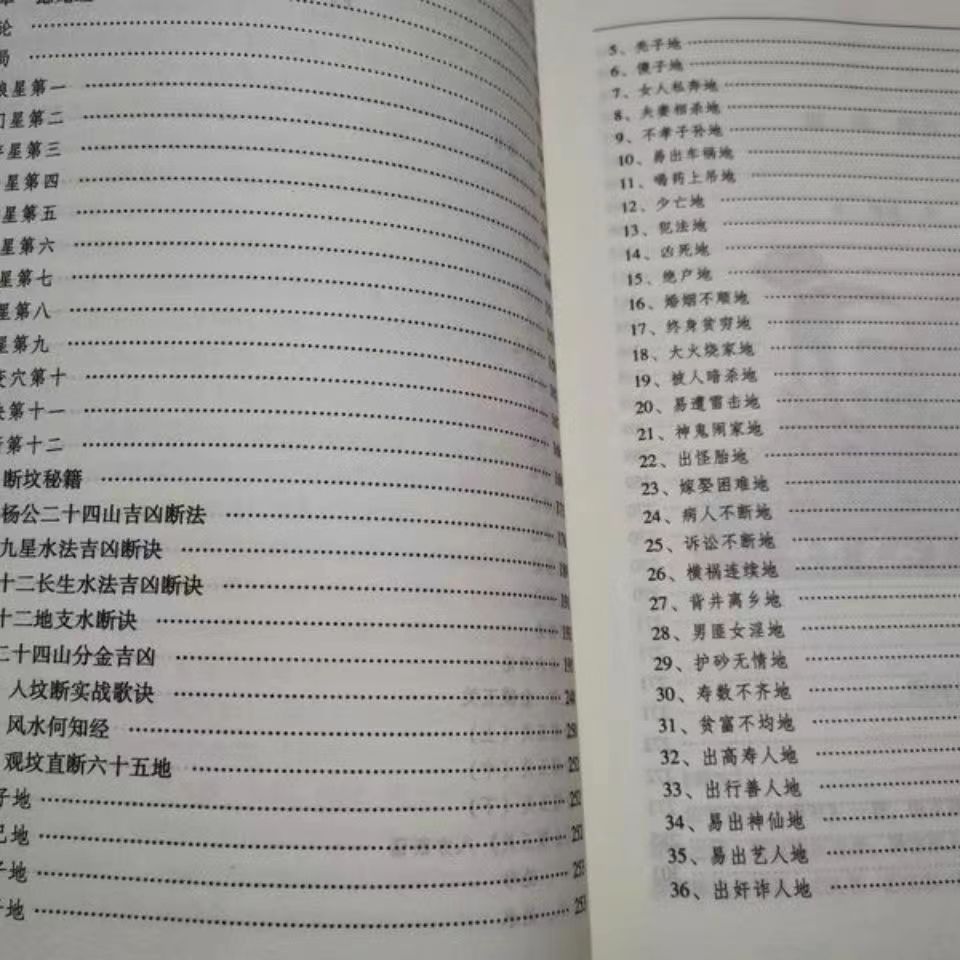 论
局
星第一
星第二
星第三
星第四
星第五
星第六
星第七
星第八
星第九
变穴第十
诀第十一
断第十二
断坟秘籍
杨公二十四山吉凶断法
九星水法吉凶断诀
十二长生水法吉凶断诀
十二地支水断诀
二十四山分金吉凶
人坟断实战歌诀
风水何知经
观坟直断六十五地 252
子地 252
己地 252
子地 253
地 253
5、秃子地
6、傻子地
7、女人私奔地
8、夫妻相杀地
9、不孝子孙地
10、易出车祸地
11、喝药上吊地
12、少亡地
13、犯法地
14、凶死地
15、绝户地
16、婚姻不顺地
17、终身贫穷地
18、大火烧家地
19、被人暗杀地
20、易遭雷击地
21、神鬼闹家地
22、出怪胎地
23、嫁娶困难地
24、病人不断地
25、诉讼不断地
26、横祸连续地
27、背井离乡地
28、男匪女淫地
29、护砂无情地
30、寿数不齐地
31、贫富不均地
32、出高寿人地
33、出行善人地
34、易出神仙地
35、易出艺人地
36、出奸诈人地